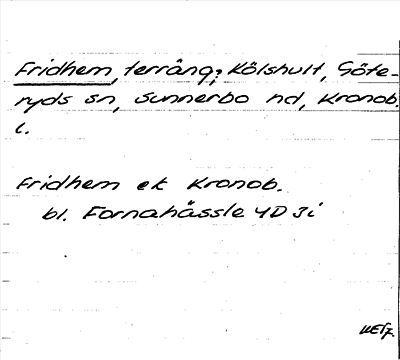 Fridhem, terräng, Kölshult, Göte-
ryds sn, Sunnerbo hd, Kronob.
l.
Fridhem ek Kronob.
bl. Fornahässle 4D 3i